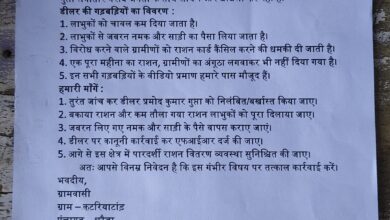 डीलर की गड़बड़ियों का विवरण :
1. लाभुकों को चावल कम दिया जाता है।
2. लाभुकों से जबरन नमक और साड़ी का पैसा लिया जाता है।
3. विरोध करने वाले ग्रामीणों को राशन कार्ड कैंसिल करने की धमकी दी जाती है।
4. एक पूरा महीना का राशन, ग्रामीणों का अंगूठा लगवाकर भी नहीं दिया गया है।
5. इन सभी गड़बड़ियों के वीडियो प्रमाण हमारे पास मौजूद हैं।
हमारी माँगें :
1. तुरंत जांच कर डीलर प्रमोद कुमार गुप्ता को निलंबित/बर्खास्त किया जाए।
2. बकाया राशन और कम तौला गया राशन लाभुकों को पूरा दिलाया जाए।
3. जबरन लिए गए नमक और साड़ी के पैसे वापस कराए जाएं।
4. डीलर पर कानूनी कार्रवाई कर एफआईआर दर्ज की जाए।
5. आगे से इस क्षेत्र में पारदर्शी राशन वितरण व्यवस्था सुनिश्चित की जाए।
अतः आपसे विनम्र निवेदन है कि इस गंभीर विषय पर तत्काल कार्रवाई करें।
भवदीय,
ग्रामवासी
ग्राम – कटरियाटांड़